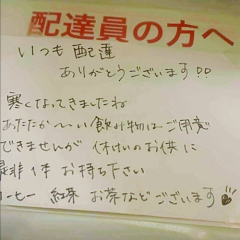 配達員の方へ
いつも配達
ありがとうございます!!
寒くなってきましたね
あたたか〜い飲み物はご用意
できませんが 休けいのお供に
是非 1本 お持ち下さい
コーヒー 紅茶 お茶などございます